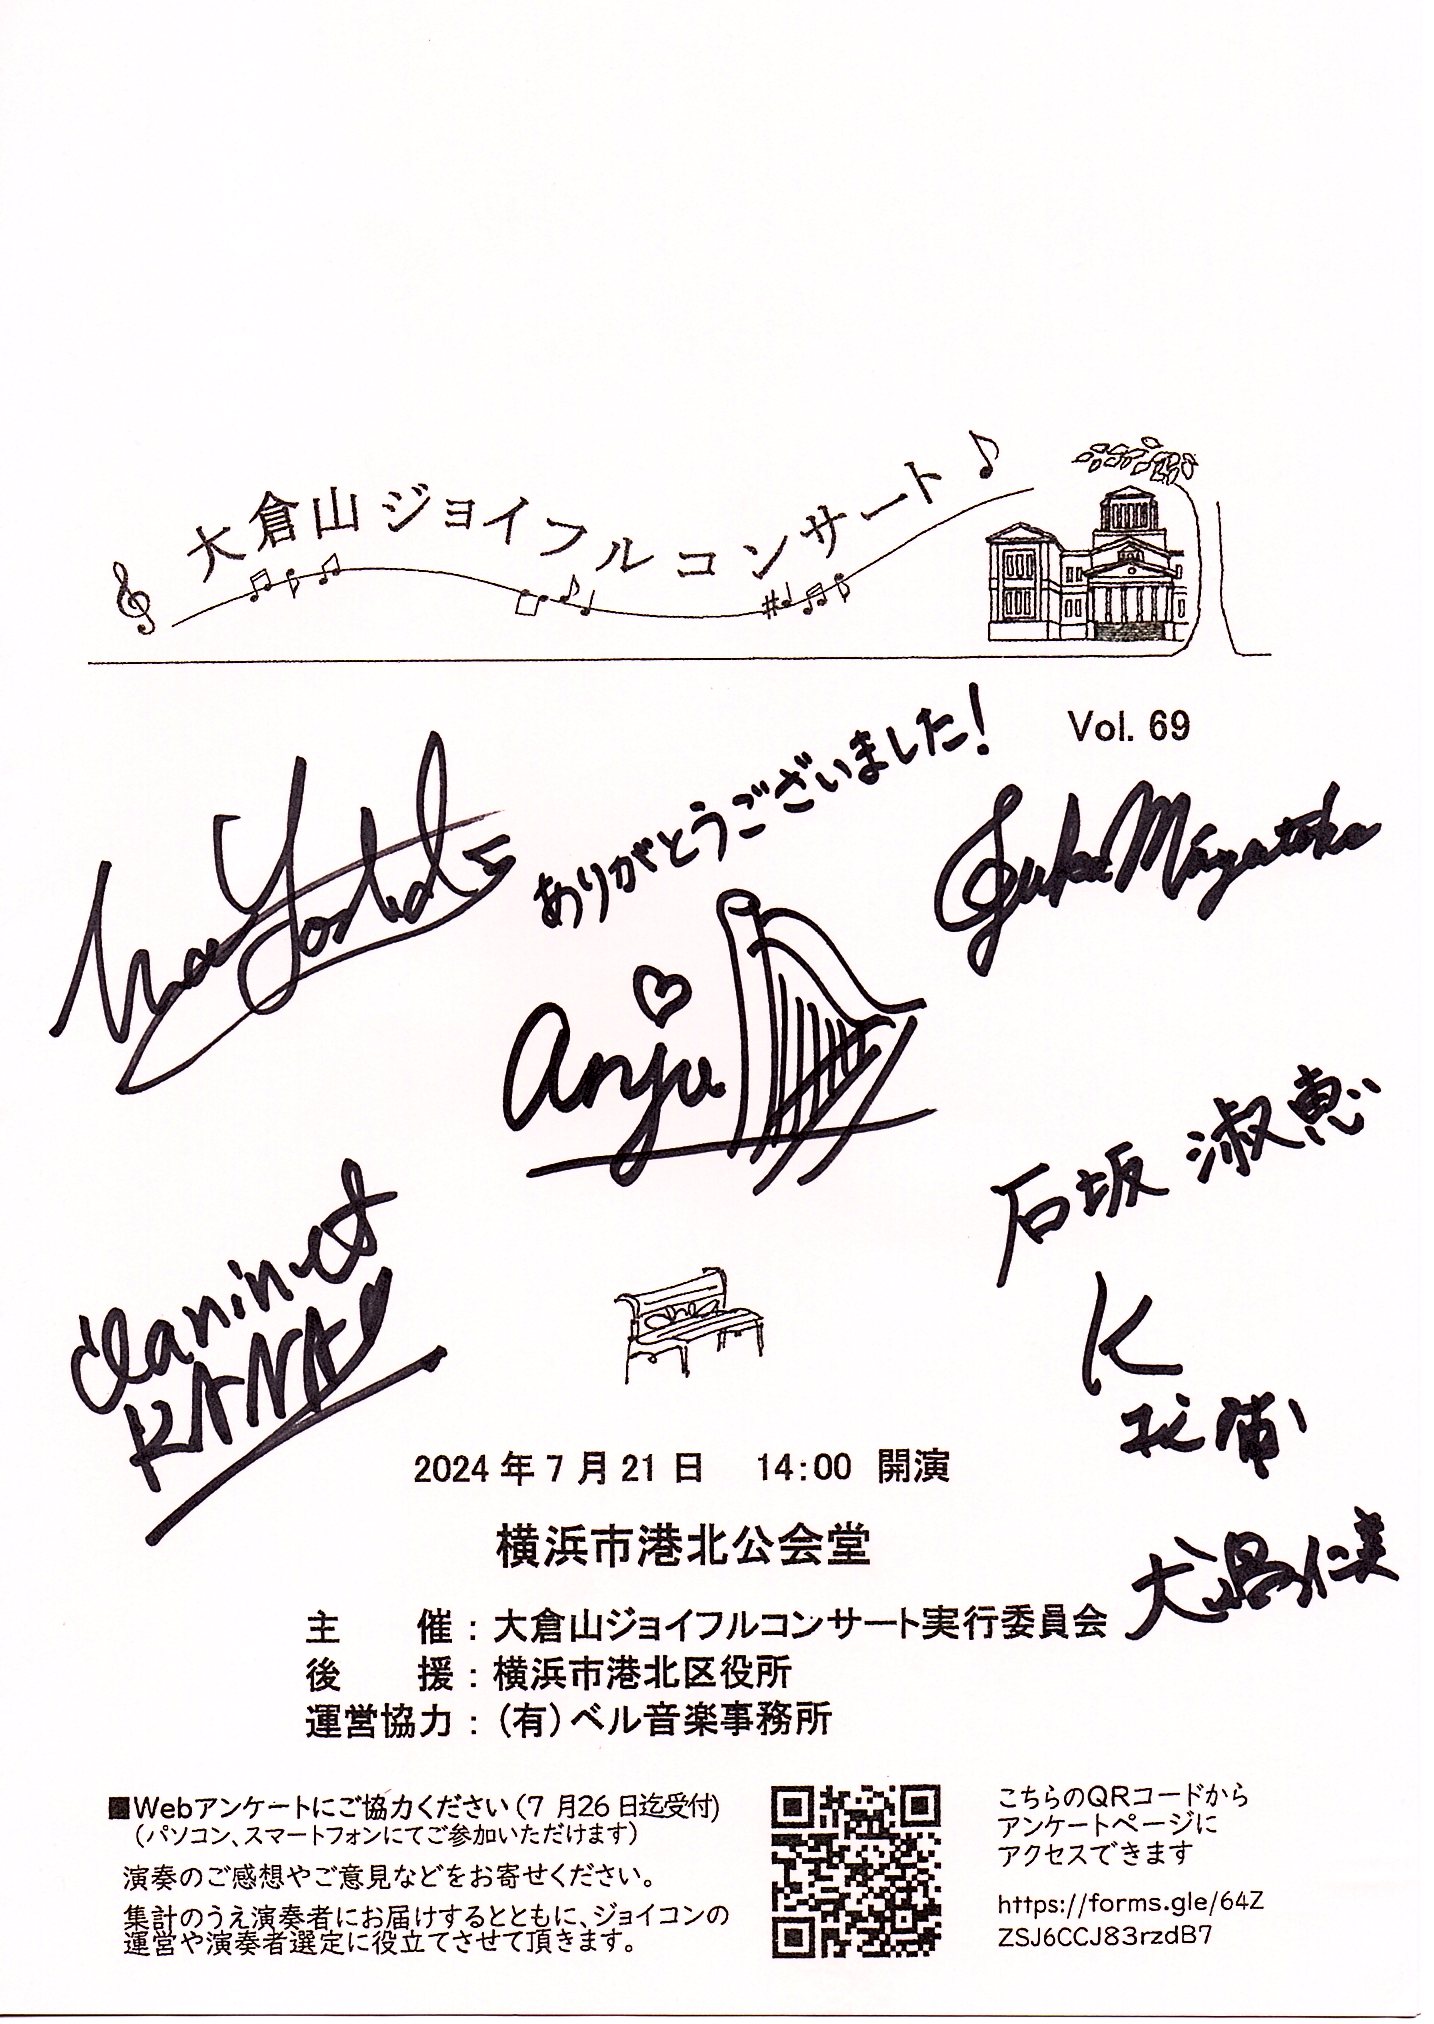 大倉山ジョイフルコンサート♪
Vol. 69
ありがとうございました!
anju
石坂 淑恵
Clarinet
KANA
K
2024年7月21日 14:00 開演
横浜市港北公会堂
主 催：大倉山ジョイフルコンサート実行委員会
後 援：横浜市港北区役所
運営協力：(有)ベル音楽事務所
■Webアンケートにご協力ください(7月26日迄受付)
(パソコン、スマートフォンにてご参加いただけます)
演奏のご感想やご意見などをお寄せください。
集計のうえ演奏者にお届けするとともに、ジョイコンの
運営や演奏者選定に役立てさせて頂きます。
こちらのQRコードから
アンケートページに
アクセスできます
https://forms.gle/64Z
ZSJ6CCJ83rzdB7